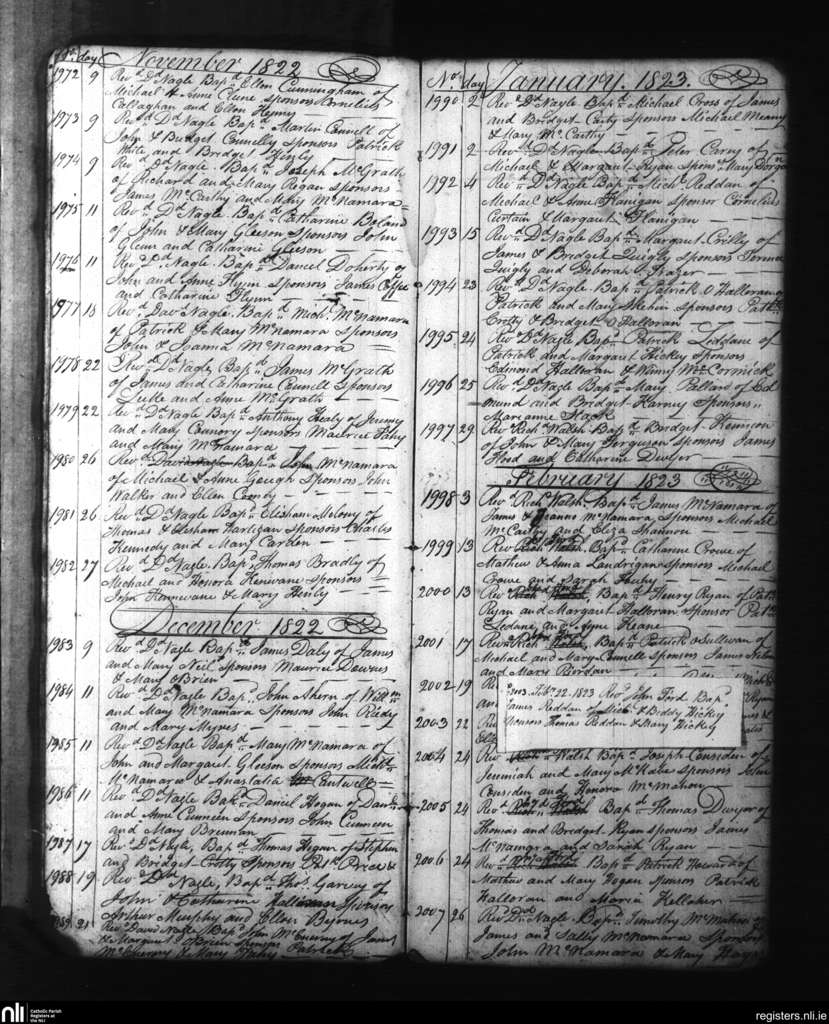 No. day November 1822
1972 9 Revd Dd Nagle Bapd Ellen Cunningham of
Michael & Anne Clune Sponsors Cornelius
Callaghan and Ellen
1973 9 Revd Dd Nagle Bapd Martin Connell of
John & Bridget Connelly Sponsors Patrick
White and Bridget Henly
1974 9 Revd Dd Nagle Bapd Joseph McGrath
of Richard and Mary Regan Sponsors
James McCarthy and Mary McNamara
1975 11 Revd Dd Nagle Bapd Catharine Boland
of John & Mary Gleeson Sponsors John
and Catharine Gleeson
1976 11 Revd Dd Nagle Bapd Daniel Doherty of
John and Anne Flynn Sponsors James
and Catharine Flynn
1977 18 Revd Davd Nagle Bapd Michl McNamara
of Patrick & Mary McNamara Sponsors
John & Joanna McNamara
1978 22 Revd Dd Nagle Bapd James McGrath
of James and Catharine Connell Sponsors
and Anne McGrath
1979 22 Revd Dd Nagle Bapd Anthony Healy of Jeremy
and Mary Connory Sponsors Maurice Fahy
and Mary McNamara
1980 26 Revd David Nagle Bapd John McNamara
of Michael & Anne Geough Sponsors John
Walker and Ellen
1981 26 Revd Dd Nagle Bapd Elisham Molony of
Thomas & Elisham Hartigan Sponsors Charles
Kennedy and Mary Carden
1982 27 Revd Dd Nagle Bapd Thomas Bradly of
Michael and Honora Sponsors
John & Mary Henly
December 1822
1983 9 Revd Dd Nagle Bapd James Daly of James
and Mary Neil Sponsors Maurice Downes
& Mary OBrien
1984 11 Revd Dd Nagle Bapd John Ahern of Willm
and Mary McNamara Sponsors John Reidy
and Mary
1985 11 Revd Dd Nagle Bapd Mary McNamara of
John and Margaret Gleeson Sponsors Michl
McNamara & Anastatia Cantwell
1986 11 Revd Dd Nagle Bapd Daniel Hogan of
and Anne Cunneen Sponsors John Cunneen
and Mary Brennan
1987 17 Revd Dd Nagle, Bapd Thomas Hogan of Stephen
and Bridget Crotty Sponsors Price &
1988 19 Revd Dd Nagle, Bapd Thos. Garvey of
John & Catharine Halloran Sponsors
Arthur Murphy and Ellen Byrnes
1989 21 Revd David Nagle Bapd John McEnerny of James
& Margaret OBrien Sponsors Patrick
McEnerny & Mary Fahy
No. day January. 1823.
1990 2 Revd Dd Nagle Bapd Michael Cross of James
and Bridget Sponsors Michael Meany
& Mary McCarthy
1991 2 Revd Dd Nagle Bapd Peter Carny of
Michael & Margaret Ryan Sponsr Mary
1992 4 Revd Dd Nagle Bapd Michl Reddan of
Michael & Anne Flanigan Sponsor Cornelius
Curtain & Margaret Flanigan
1993 15 Revd Dd Nagle Bapd Margaret Crilly of
James & Bridget Quigly Sponsors Terence
Quigly and Deborah Frazer
1994 23 Revd Dd Nagle Bapd Patrick O Halloran of
Patrick and Mary Sponsors
Crotty & Bridget O Halloran
1995 24 Revd Dd Nagle Bapd Patrick Leddane of
Patrick and Margaret Hickey Sponsors
Edmond Halloran & Winny McCormick
1996 25 Revd Dd Nagle Bapd Mary Pollard of Ed
mund and Bridget Harney Sponsors
Marianne Stack
1997 29 Revd Richd Walsh Bapd Bridget
of John & Mary Ferguson Sponsors James
Hood and Catharine Dwyer
February 1823
1998 3 Revd Richd Walsh Bapd James McNamara of
James & Joanne McNamara Sponsors Michael
McCarthy and Eliza Shannon
1999 13 Revd Richd Walsh Bapd Catharine Crowe of
Mathew & Anna Landrigan Sponsors Michael
Crowe and Sarah
2000 13 Revd Richd Walsh Bapd Henry Ryan of
Ryan and Margaret Halloran Sponsor
Ledane and Anne Keane
2001 17 Revd Richd Walsh Bapd Patrick OSullivan of
Michael and Mary Connell Sponsors James
and Mary Riordan
2002 19
2003. Feby 22. 1823 Revd John Ford Bapd
James Reddan of Michl & Biddy Hickey
Sponsors Thomas Reddan & Mary Hickey
2003 22
2004 24 Revd Richd Walsh Bapd Joseph Considen of
Jeremiah and Mary McKabe Sponsors John
Considen and Honora McMahon
2005 24 Revd Richd Walsh Bapd Thomas Dwyer of
Thomas and Bridget Ryan Sponsors James
McNamara and Sarah Ryan
2006 24 Revd Bapd Patrick Howard of
Mathew and Mary Hogan Sponsors Patrick
Halloran and Maria Kelleher
2007 26 Revd Dd Nagle Bapd Timothy McMahon of
James and Sally McNamara Sponsors
John McNamara & Mary Hayes
nli Catholic Parish
Registers at
the NLI
registers.nli.ie